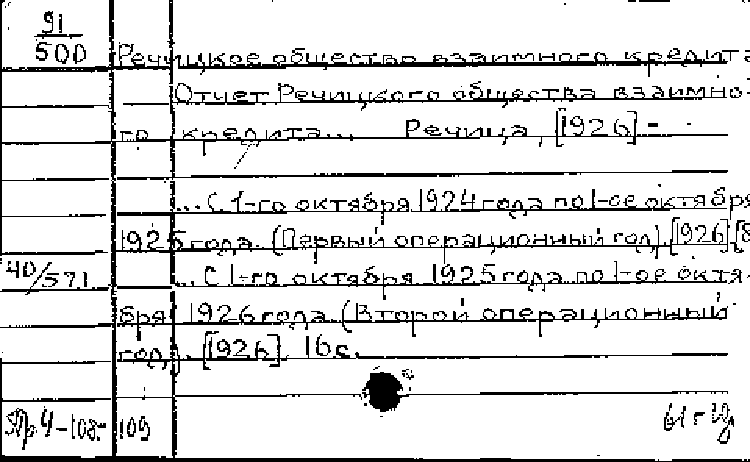 91
500
Речицкое общество взаимного кредита
Отчет Речицкого общества взаимно-
го кредита... Речица, [1926] -
... С 1-го октября 1924 года по 1-ое октября
1925 года. (Первый операционный год). [1926]. [8
40/571
... С 1-го октября 1925 года по 1-ое октя-
бря 1926 года. (Второй операционный
год). [1926]. 16 с.
109